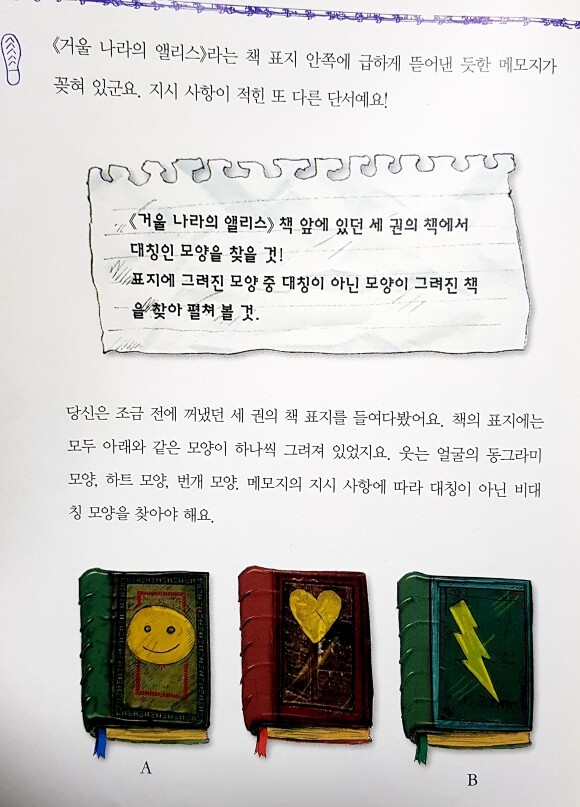 《거울 나라의 앨리스》라는 책 표지 안쪽에 급하게 뜯어낸 듯한 메모지가
꽂혀 있군요. 지시 사항이 적힌 또 다른 단서예요!
《거울 나라의 앨리스》 책 앞에 있던 세 권의 책에서
대칭인 모양을 찾을 것!
표지에 그려진 모양 중 대칭이 아닌 모양이 그려진 책
을 찾아 펼쳐 볼 것.
당신은 조금 전에 꺼냈던 세 권의 책 표지를 들여다봤어요. 책의 표지에는
모두 아래와 같은 모양이 하나씩 그려져 있었지요. 웃는 얼굴의 동그라미
모양, 하트 모양, 번개 모양. 메모지의 지시 사항에 따라 대칭이 아닌 비대
칭 모양을 찾아야 해요.
A
B